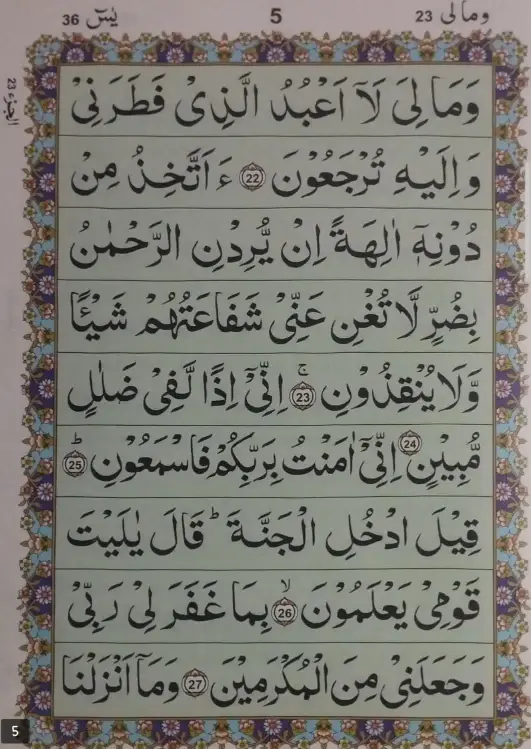 يٰسٓ 36 5 ومالى 23
الجزء 23
وَمَا لِىَ لَآ اَعْبُدُ الَّذِىْ فَطَرَنِىْ
وَاِلَيْهِ تُرْجَعُوْنَ 22 ءَ اَتَّخِذُ مِنْ
دُوْنِهٖٓ اٰلِهَةً اِنْ يُّرِدْنِ الرَّحْمٰنُ
بِضُرٍّ لَّا تُغْنِ عَنِّىْ شَفَاعَتُهُمْ شَيْـًٔا
وَّلَا يُنْقِذُوْنِ ۚ 23 اِنِّىْٓ اِذًا لَّفِىْ ضَلٰلٍ
مُّبِيْنٍ 24 اِنِّىْٓ اٰمَنْتُ بِرَبِّكُمْ فَاسْمَعُوْنِ ؕ 25
قِيْلَ ادْخُلِ الْجَنَّةَ ؕ قَالَ يٰلَيْتَ
قَوْمِىْ يَعْلَمُوْنَ ۙ 26 بِمَا غَفَرَ لِىْ رَبِّىْ
وَجَعَلَنِىْ مِنَ الْمُكْرَمِيْنَ 27 وَمَآ اَنْزَلْنَا
5